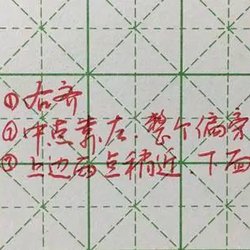 ①右齐
②中点靠左.整个偏旁
③上边两点稍近.下面